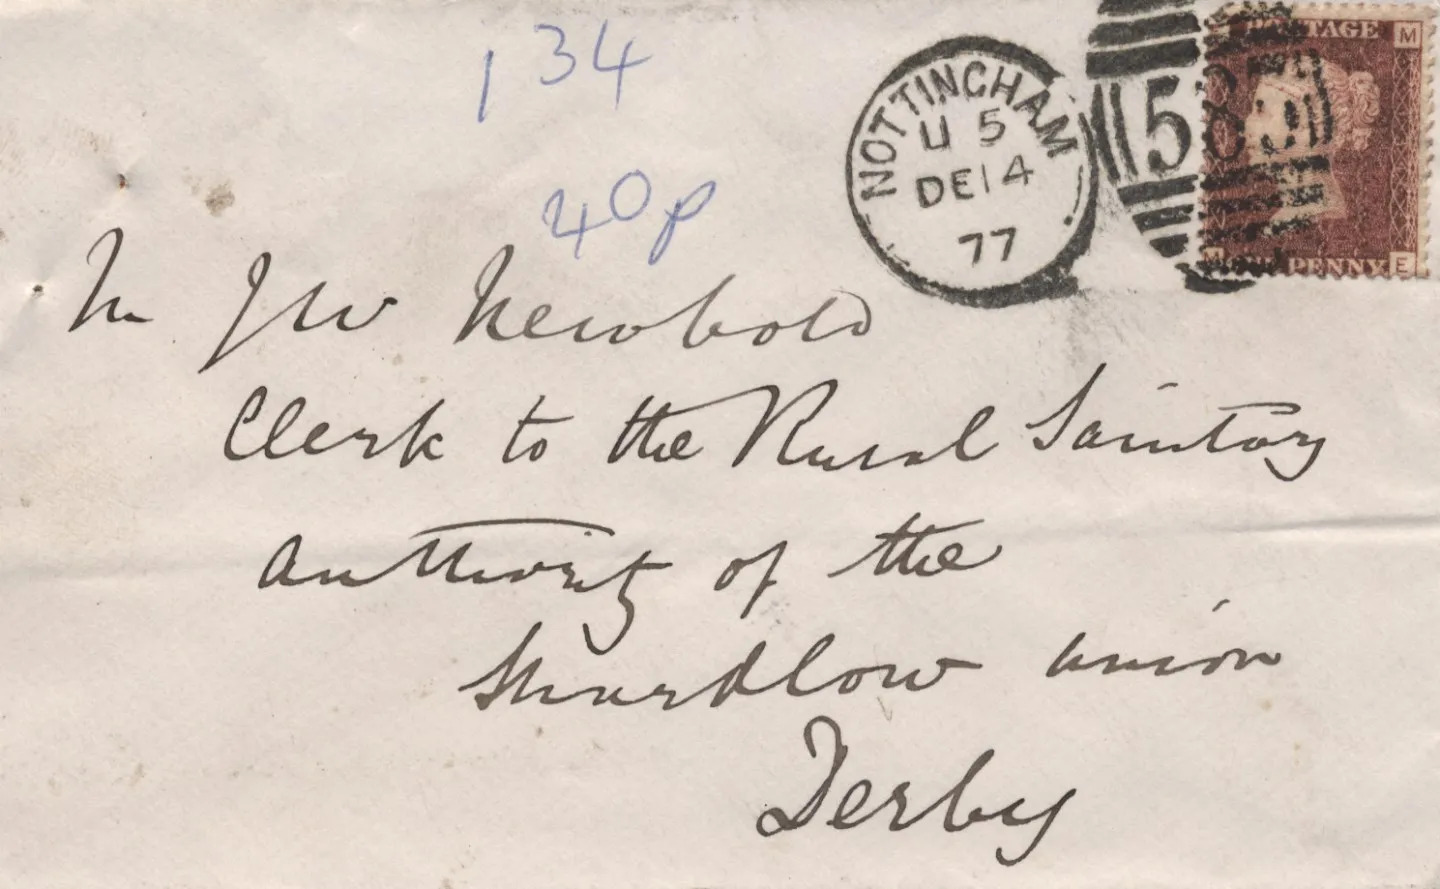 134
40p
NOTTINGHAM
U 5
DE 14
77
583
POSTAGE
M
ONE PENNY
M E
Mr J W Newbold
Clerk to the Rural Sanitary
Authority of the
Shardlow Union
Derby